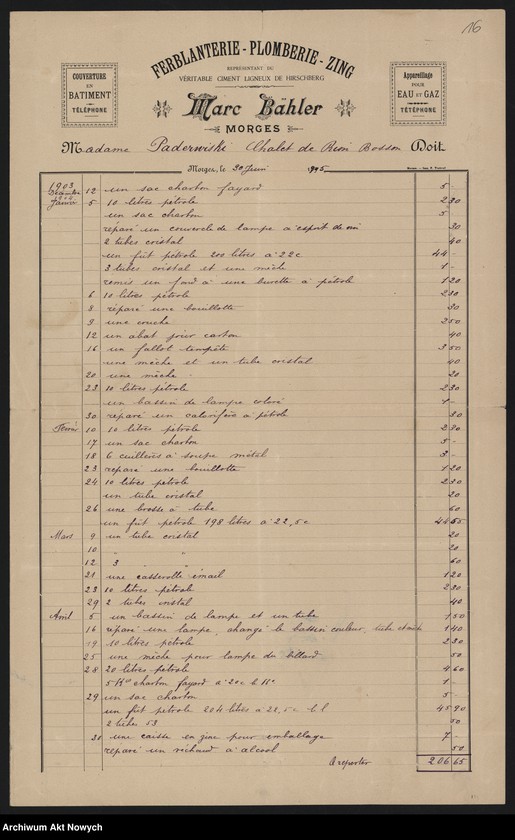 16
FERBLANTERIE - PLOMBERIE - ZING
REPRÉSENTANT DU
VÉRITABLE CIMENT LIGNEUX DE HIRSCHBERG
COUVERTURE
EN
BATIMENT
TÉLÉPHONE
Appareillage
POUR
EAU ET GAZ
TÉTÉPHONE
Marc Bähler
MORGES
Madame Paderwiski Chalet de Rion Bosson Doit
Morges, le 30 Juin 1905
1903
Décembre 12 un sac charbon fayard 5 -
Janvier 5 10 litres pétrole 2 30
un sac charbon 5 -
réparé un couvercle de lampe à esprit de vin 30
2 tubes cristal 40
un fût pétrole 200 litres à 22c 44 -
3 tubes cristal et une mèche 1 -
remis un fond à une burette à pétrole 1 20
6 10 litres pétrole 2 30
8 réparé une bouillotte 30
9 une couche 2 50
12 un abat jour carton 40
16 un fallot tempête 3 50
une mèche et un tube cristal 40
20 une mèche 20
23 10 litres pétrole 2 30
un bassin de lampe coloré 1 -
30 réparé un calorifère à pétrole 30
Février 10 10 litres pétrole 2 30
17 un sac charbon 5 -
18 6 cuillères à soupe métal 3 -
23 réparé une bouillotte 1 20
24 10 litres pétrole 2 30
un tube cristal 20
26 une brosse à tube 60
un fût pétrole 198 litres à 22,5c 44 55
Mars 9 un tube cristal 20
10 " " 20
12 3 " " 60
21 une casserolle émail 1 20
23 10 litres pétrole 2 30
29 2 tubes cristal 40
Avril 5 un bassin de lampe et un tube 1 50
16 réparé une lampe, changé le bassin couleur, tube et mèche 1 40
19 10 litres pétrole 2 30
25 une mèche pour lampe du billard 50
28 20 litres pétrole 4 60
5 Ko charbon fayard à 20c le Ko 1 -
29 un sac charbon 5 -
un fût pétrole 204 litres à 22,5c le l 45 90
2 tubes 50
30 une caisse en zinc pour emballage 7 -
réparé un réchaud à alcool 50
à reporter 206 65
Archiwum Akt Nowych